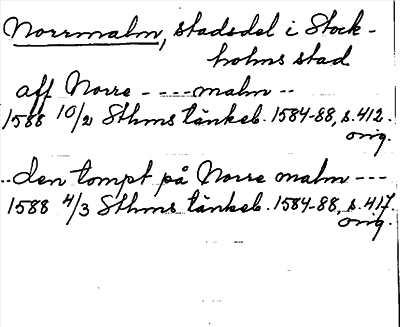 Norrmalm, stadsdel i Stock-
holms stad
aff Norre - - - - malm - -
1588 10/2 Sthms tänkeb. 1584-88, s. 412.
orig.
..den tompt på Norre malm - - -
1588 4/3 Sthms tänkeb. 1584-88, s. 417.
orig.